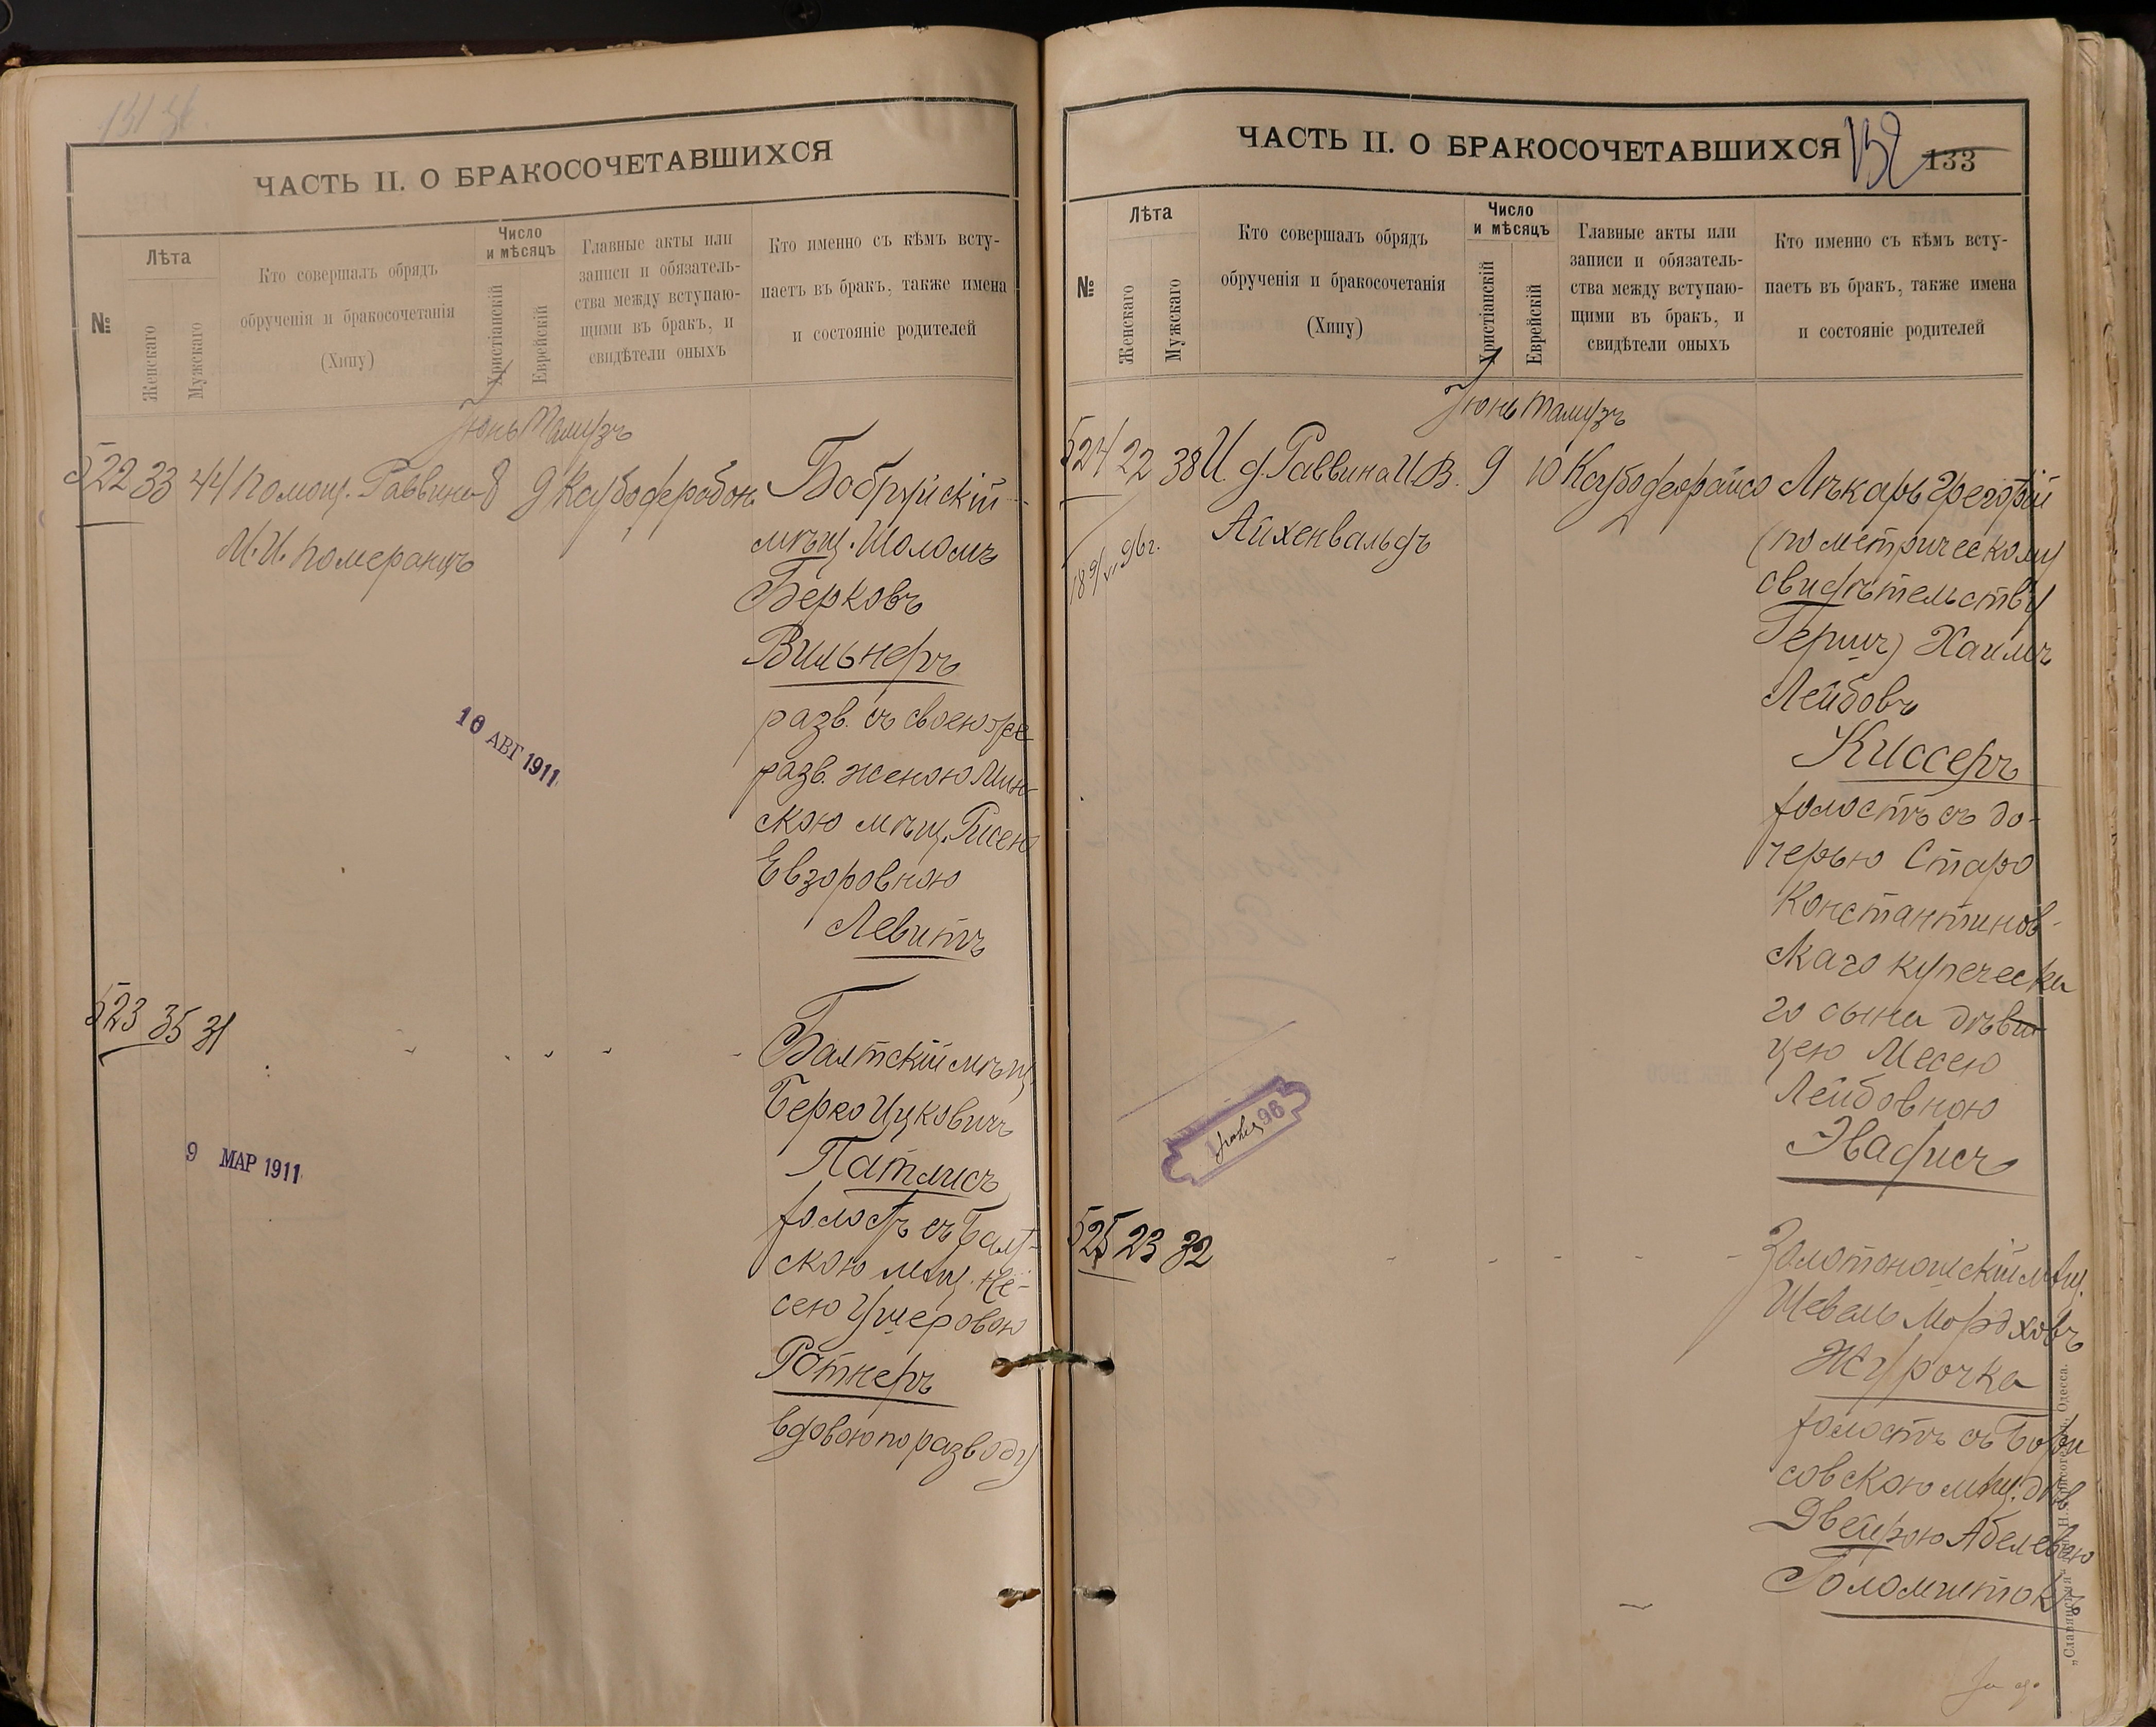 ЧАСТЬ II. О БРАКОСОЧЕТАВШИХСЯ
№
Лѣта
Женскаго
Мужскаго
Кто совершалъ обрядъ
обрученія и бракосочетанія
(Хипу)
Число
и мѣсяцъ
Христіанскій
Еврейскій
Главные акты или
записи и обязатель-
ства между вступаю-
щими въ бракъ, и
свидѣтели оныхъ
Кто именно съ кѣмъ всту-
паетъ въ бракъ, также имена
и состояніе родителей
Іюнь Тамузъ
522 33 44 Помощ. Раввина 8 9
М. И. Померанцъ
Бобруйскій
мѣщ. Шоломъ
Берковъ
Вильнеръ
разв. съ своею же
разв. женою Мин-
скою мѣщ. Рисею
Евзоровною
Левитъ
10 АВГ 1911
523 35 31
Балтскій мѣщ.
Берко Ицковичъ
Патлисъ
холостъ съ Балт-
скою мѣщ. Не-
сею Ушеровою
Ротнеръ
вдовою по разводу
9 МАР 1911
ЧАСТЬ II. О БРАКОСОЧЕТАВШИХСЯ
132
133
№
Лѣта
Женскаго
Мужскаго
Кто совершалъ обрядъ
обрученія и бракосочетанія
(Хипу)
Число
и мѣсяцъ
Христіанскій
Еврейскій
Главные акты или
записи и обязатель-
ства между вступаю-
щими въ бракъ, и
свидѣтели оныхъ
Кто именно съ кѣмъ всту-
паетъ въ бракъ, также имена
и состояніе родителей
Іюнь Тамузъ
524 22 38 И. д. Раввина И. В. 9 10
Айхенвальдъ
Лѣкарь Григорій
(по метрическому
свидѣтельству
Гершъ) Хаимъ
Лейбовъ
Киссеръ
холостъ съ до-
черью Старо
Константинов-
скаго купеческа
го сына дѣви
цею Месею
Лейбовною
Эвадисъ
525 23 32
Золотоношскій мѣщ.
Шевель Мордховъ
Журочка
холостъ съ Бори
совскою мѣщ. дѣв
Двейрою Абелевою
Голомштокъ